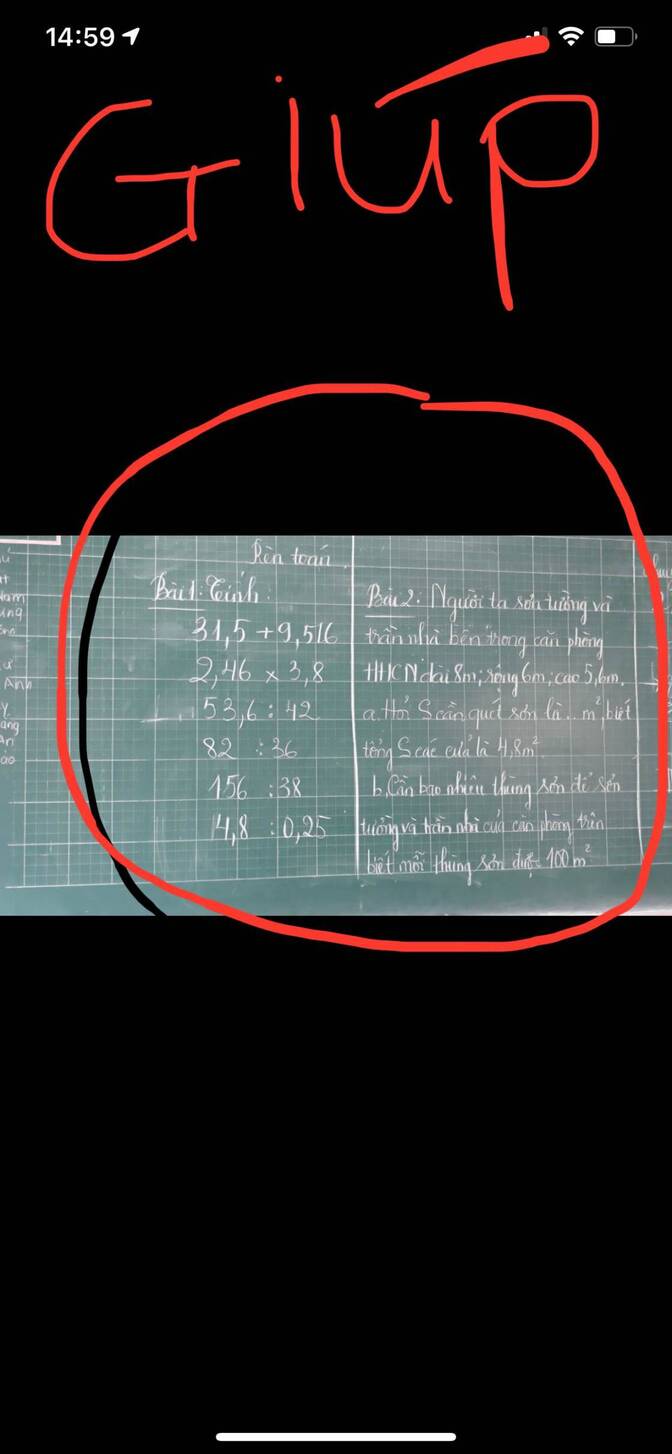 14:59
Giúp
Rèn toán
Bài 1: Tính:
31,5 + 9,516
2,46 x 3,8
53,6 : 42
82 : 36
156 : 38
14,8 : 0,25
Bài 2: Người ta sơn tường và
trần nhà bên trong căn phòng
HHCN dài 8m; rộng 6m; cao 5,6m.
a. Hỏi S cần quét sơn là... m², biết
tổng S các cửa là 4,8m².
b. Cần bao nhiêu thùng sơn để sơn
tường và trần nhà của căn phòng trên
biết mỗi thùng sơn được 100m²
Nam
Anh